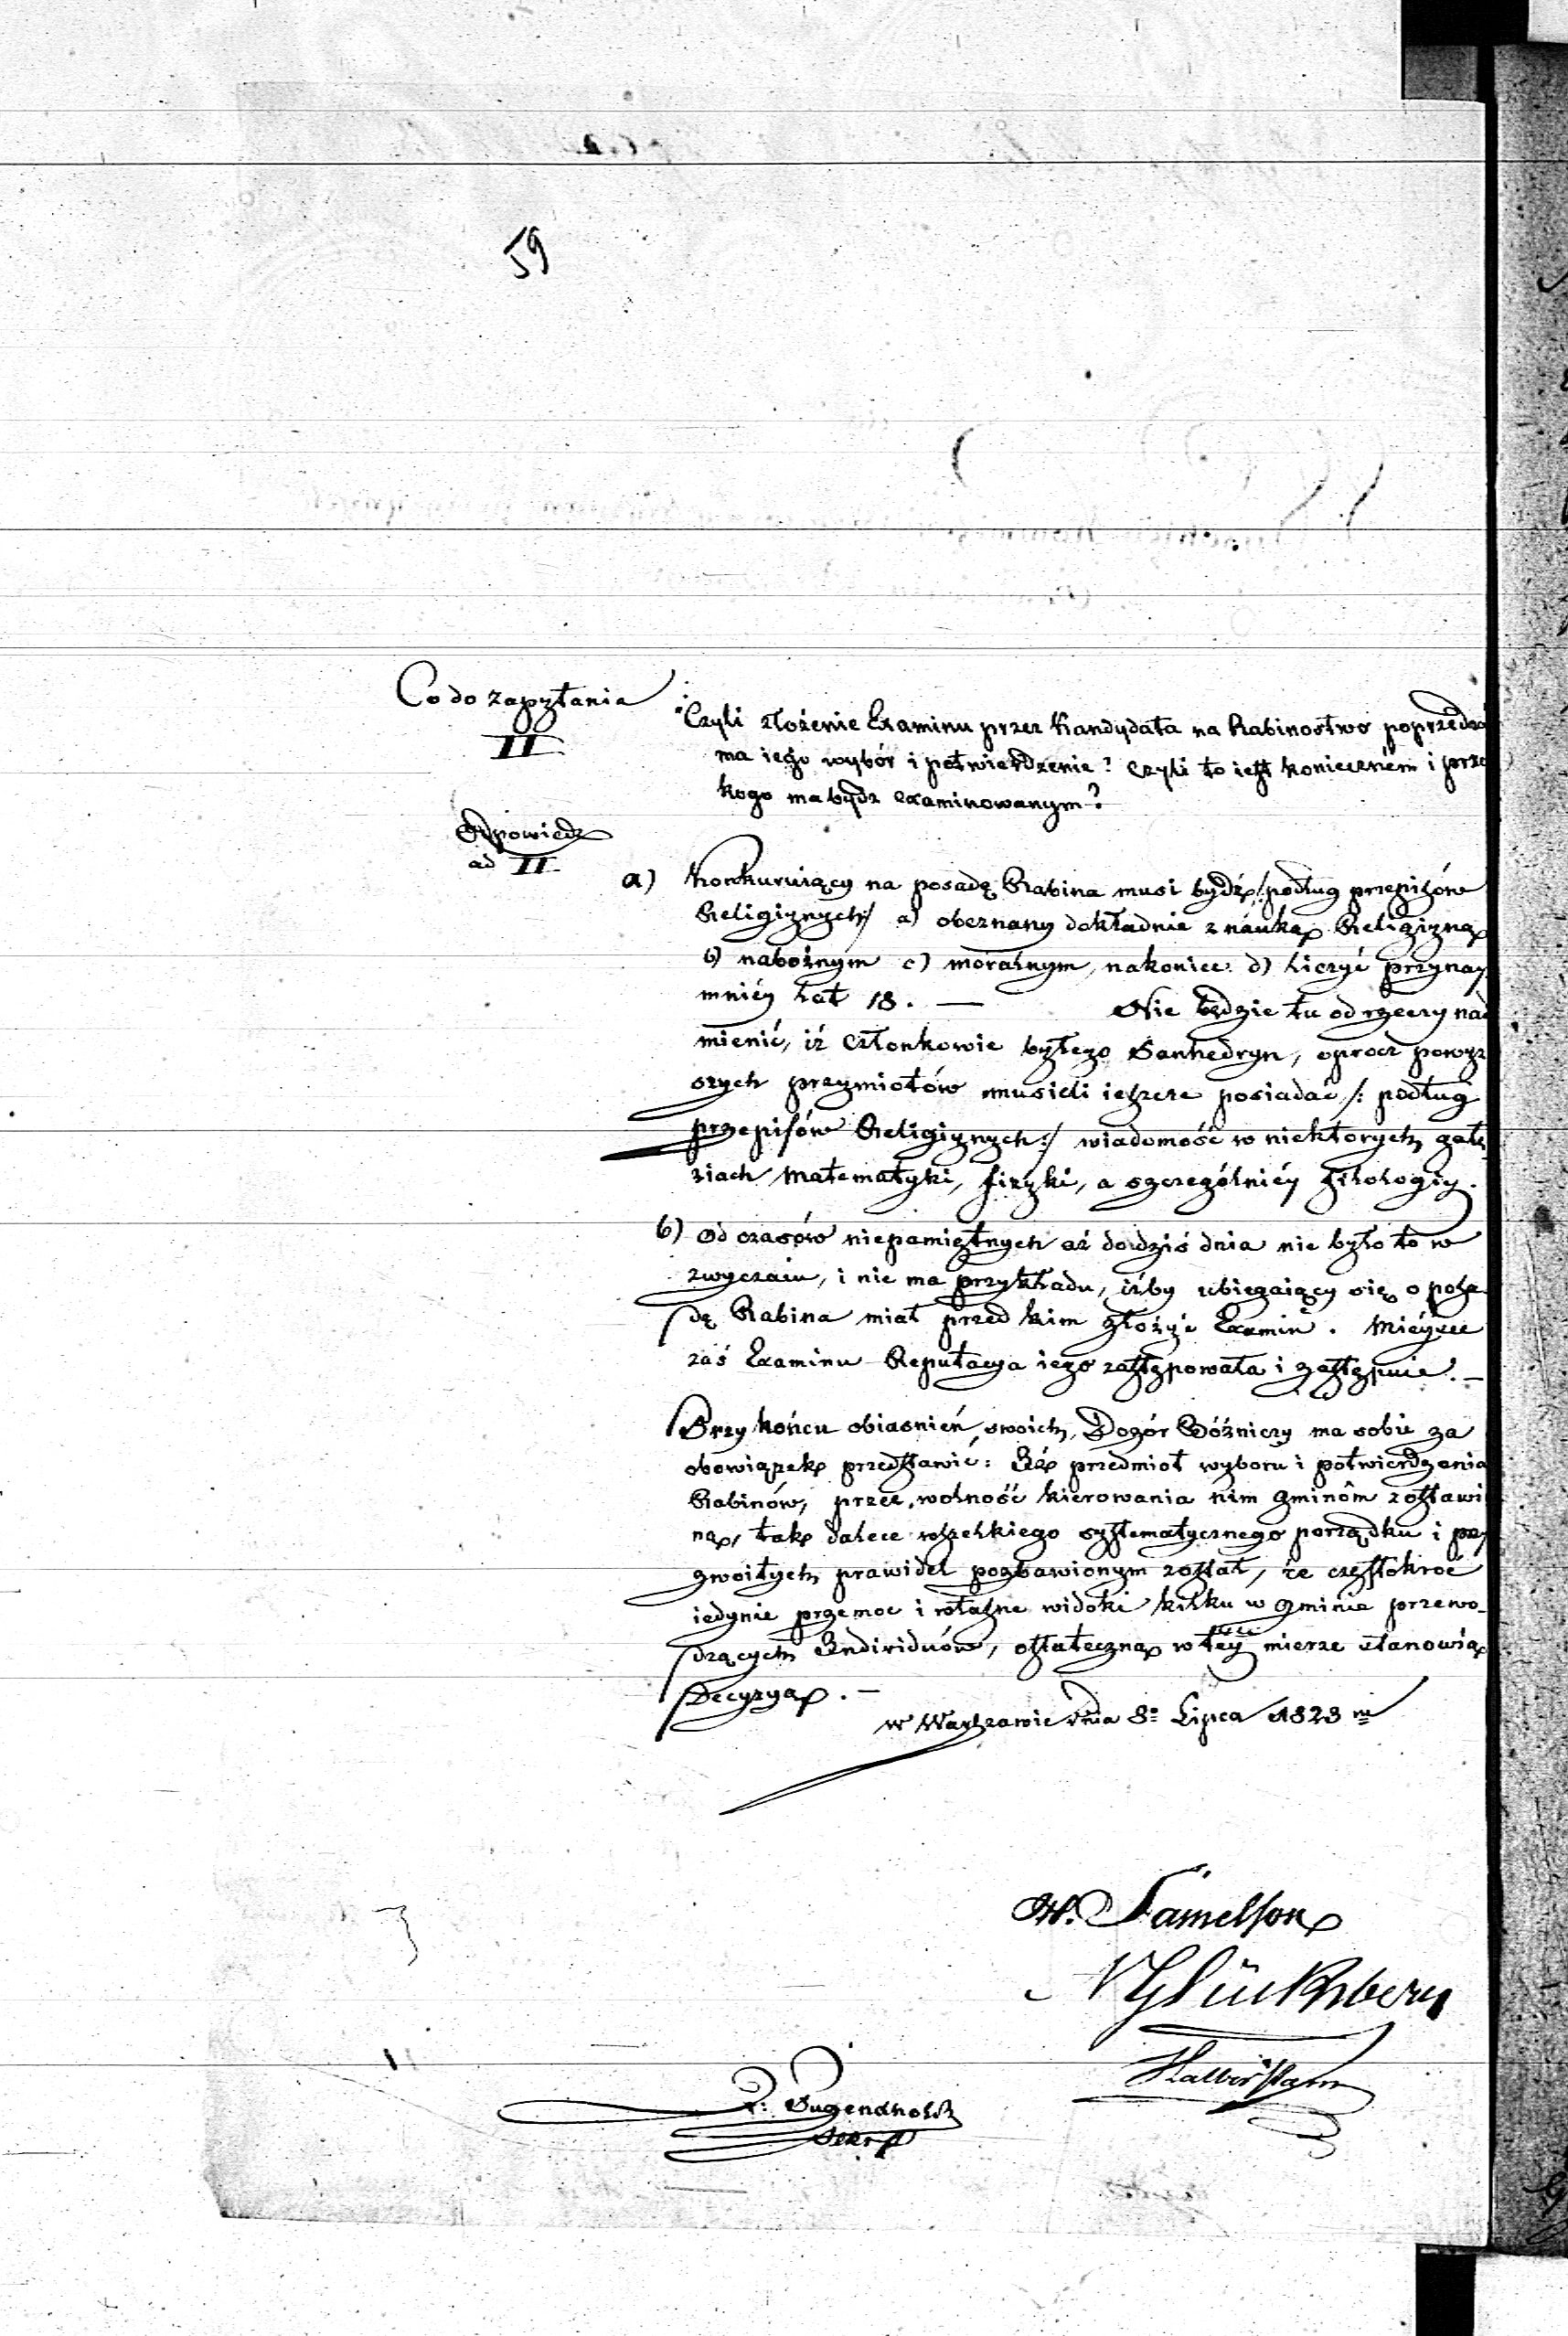 59
Co do zapytania
II
"Czyli złożenie Examinu przez Kandydata na Rabinostwo poprzedzać
ma iego wybór i potwierdzenie? Czyli to iest konieczném i prze
kogo ma bydz examinowanym?
Odpowiedz
ad II
a) Konkuruiący na posadę Rabina musi bydź /:podług przepisów
Religiynych:/ a) obeznany dokładnie z náuką Religiyną
b) nabożnym c) moralnym, nakoniec d) liczyć przynay
mniéy lat 18. — Nie będzie tu od rzeczy nad
mienić, iż Członkowie byłego Sanhedryn, oprocz powyż
szych przymiotów musieli ieszcze posiadać /: podług
przepisów Religiynych:/ wiadomość w niektorych gałę
ziach Matematyki, fizyki, a szczególniéy filologiy.
b) Od czasów niepamiętnych aż do dziś dnia nie było to w
zwyczaiu, i nie ma przykładu, iżby ubiegaiący się o posa
dę Rabina miał przed kim złożyć Examin. Mieysce
zaś Examinu Reputacya iego zastępowała i zastępuie. —
Przy końcu obiasnień swoich, Dozór Bóżniczy ma sobie za
obowiązek przedstawić: Iż przedmiot wyboru i potwierdzenia
Rabinów, przez wolność kierowania nim gminom zostawio
ną, tak dalece wszelkiego systematycznego porządku i przy
zwoitych prawideł pozbawionym został, że częstokroć
iedynie przemoc i własne widoki kilku w gminie przewo-
dzących Individuów, ostateczną w téy mierze stanowią
Decyzyą. —
w Warszawie dnia 8º Lipca 1823 m
M. Samelson
N Glücksberg
Halberstam
J. Tugendhold
Sekr